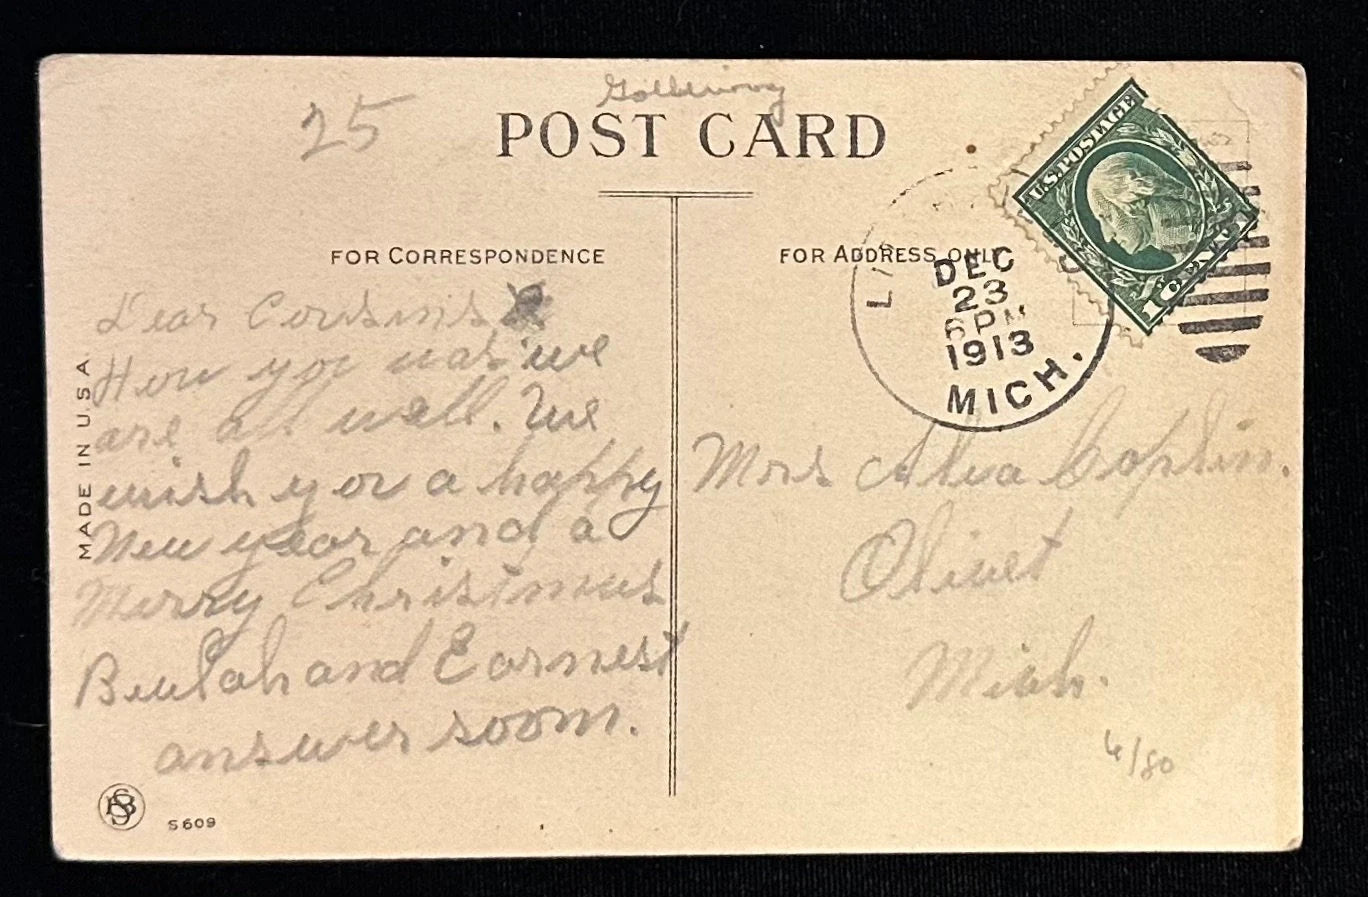 25
POST CARD
FOR CORRESPONDENCE
FOR ADDRESS ONLY
U.S. POSTAGE
DEC
23
6 PM
1913
MICH.
MADE IN U.S.A
Dear Cousins
How you
we
are al well. We
wish you a happy
New year and a
Merry Christmas
Beulah and Earnest
answer soom.
Mrs Alva Coplin.
Olivet
Mich.
6/80
S609